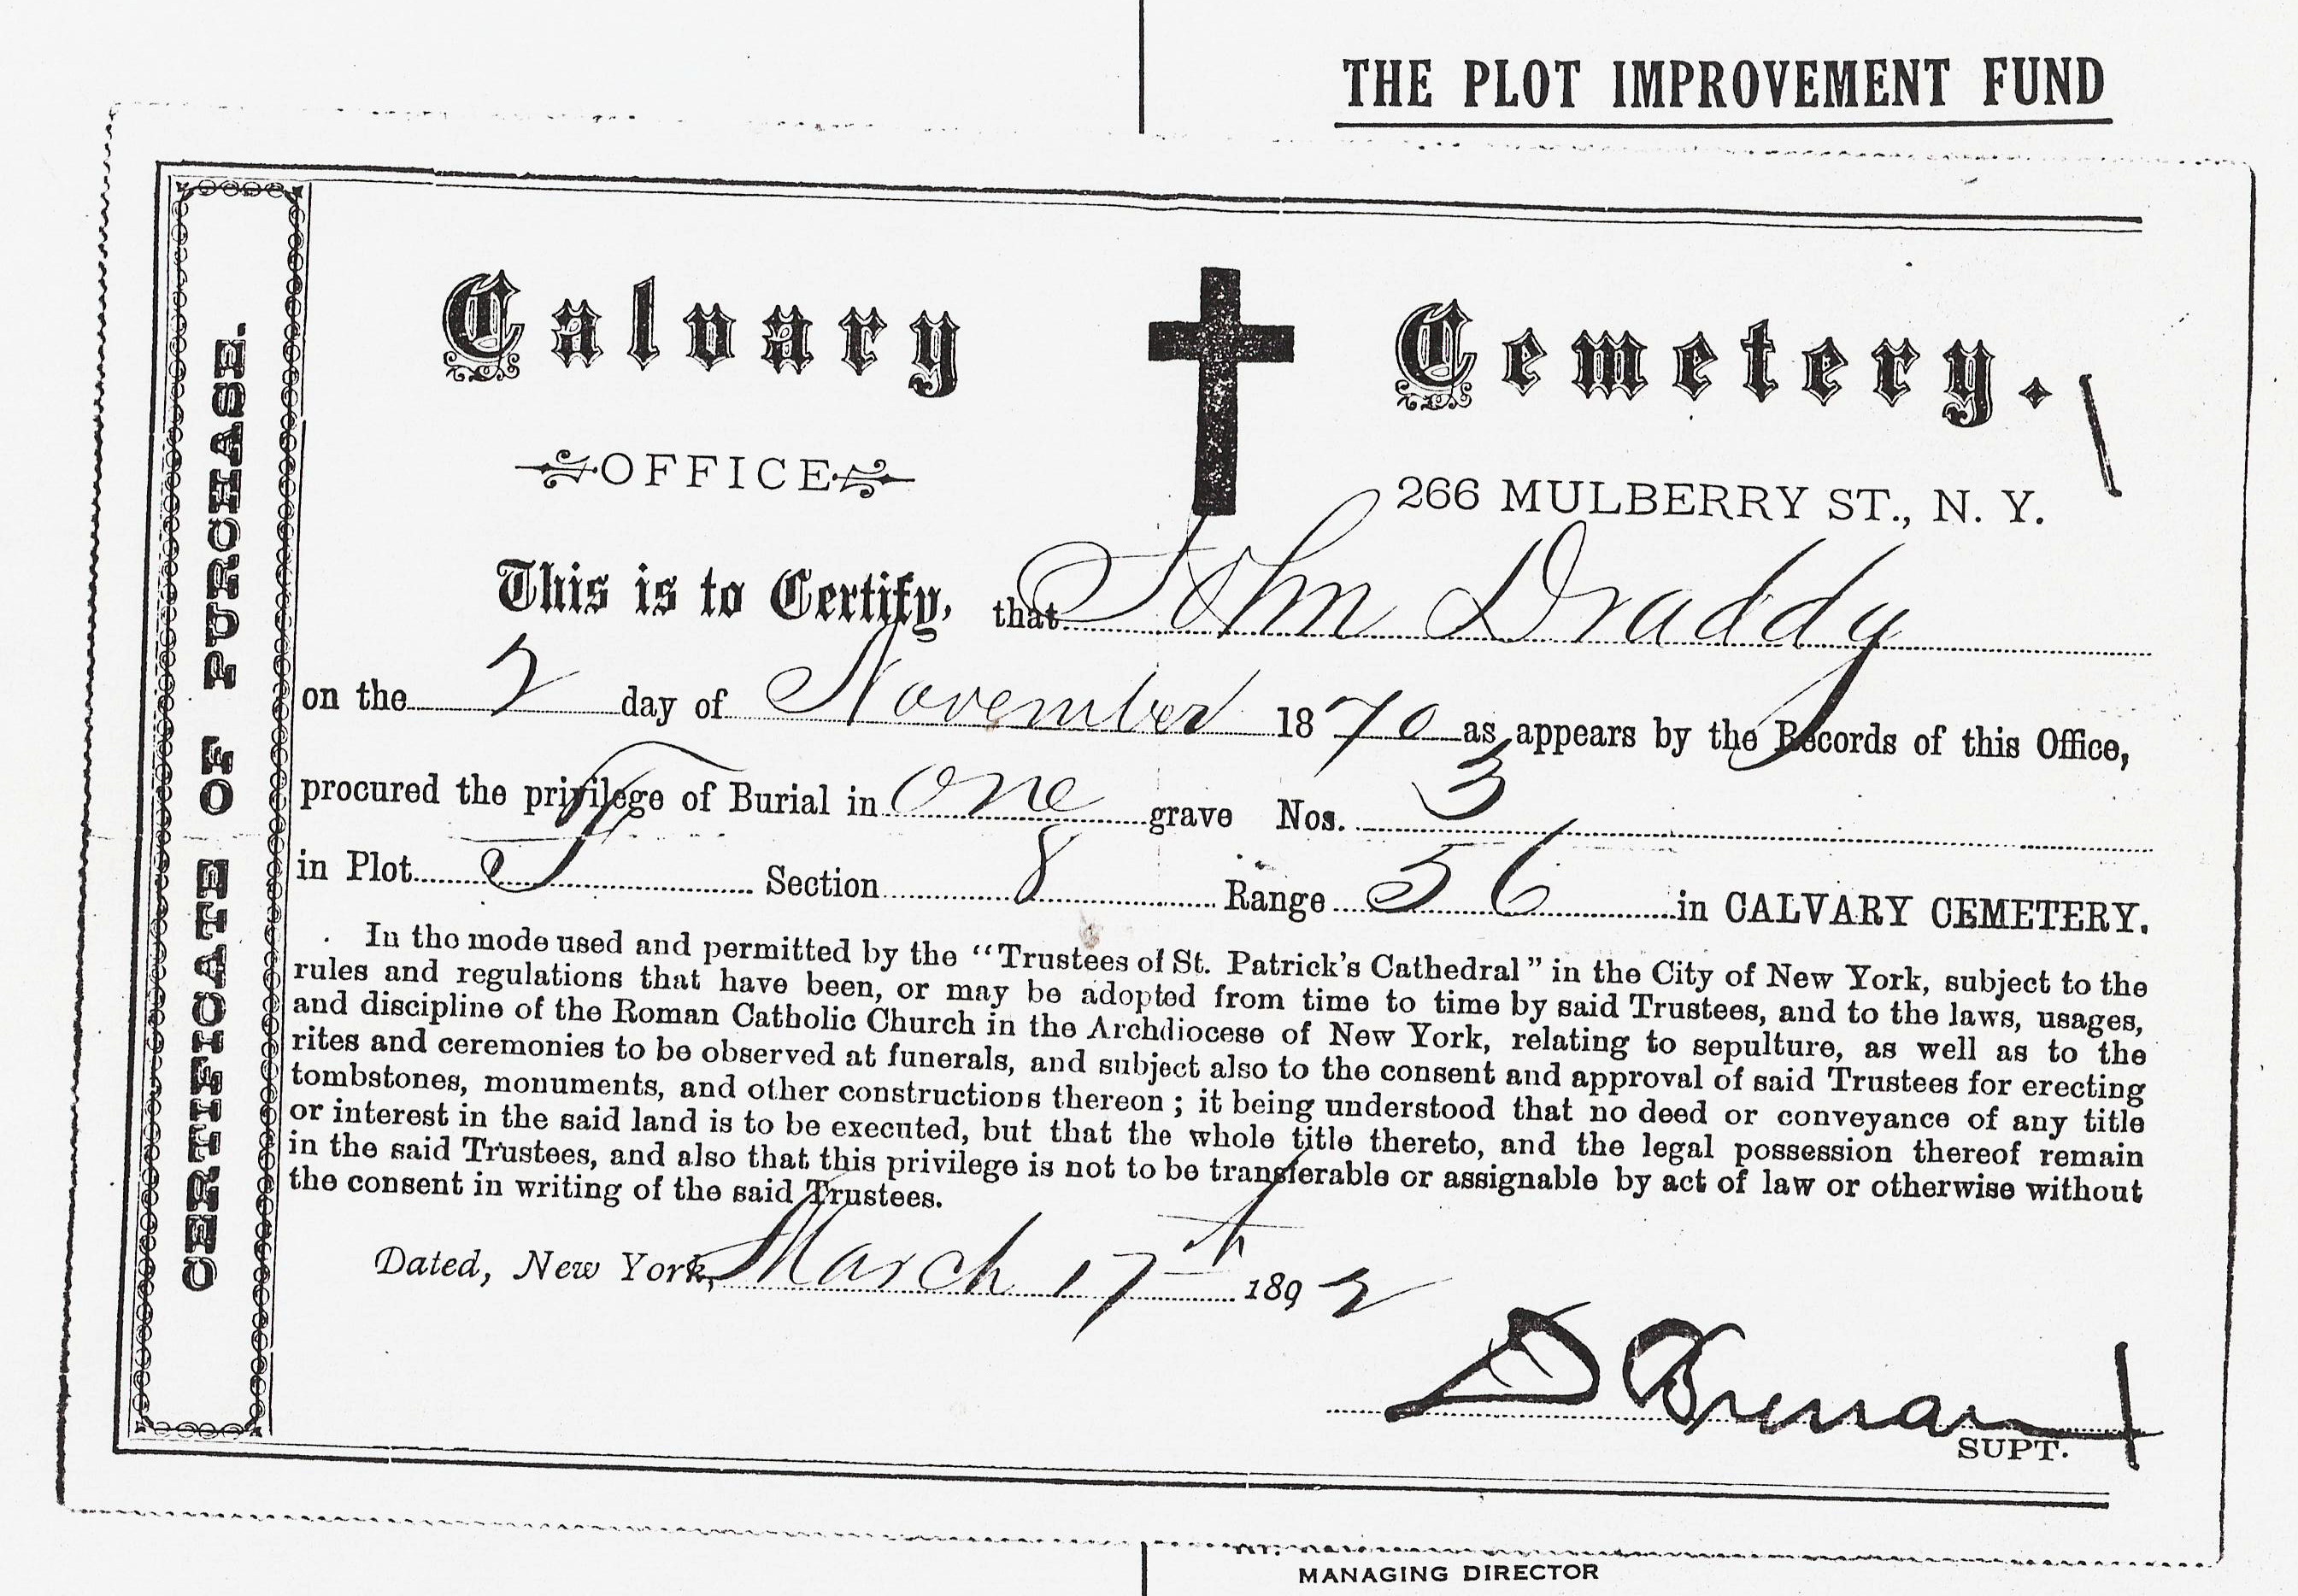 THE PLOT IMPROVEMENT FUND
CERTIFICATE OF PURCHASE.
Calvary Cemetery.
OFFICE 266 MULBERRY ST., N. Y.
This is to Certify, that John Draddy
on the 2 day of November 1870 as appears by the Records of this Office,
procured the privilege of Burial in one grave Nos. 3
in Plot Section 8 Range 56 in CALVARY CEMETERY.
In the mode used and permitted by the "Trustees of St. Patrick's Cathedral" in the City of New York, subject to the
rules and regulations that have been, or may be adopted from time to time by said Trustees, and to the laws, usages,
and discipline of the Roman Catholic Church in the Archdiocese of New York, relating to sepulture, as well as to the
rites and ceremonies to be observed at funerals, and subject also to the consent and approval of said Trustees for erecting
tombstones, monuments, and other constructions thereon; it being understood that no deed or conveyance of any title
or interest in the said land is to be executed, but that the whole title thereto, and the legal possession thereof remain
in the said Trustees, and also that this privilege is not to be transferable or assignable by act of law or otherwise without
the consent in writing of the said Trustees.
Dated, New York, March 17th 1892
D Brennan
SUPT.
MANAGING DIRECTOR